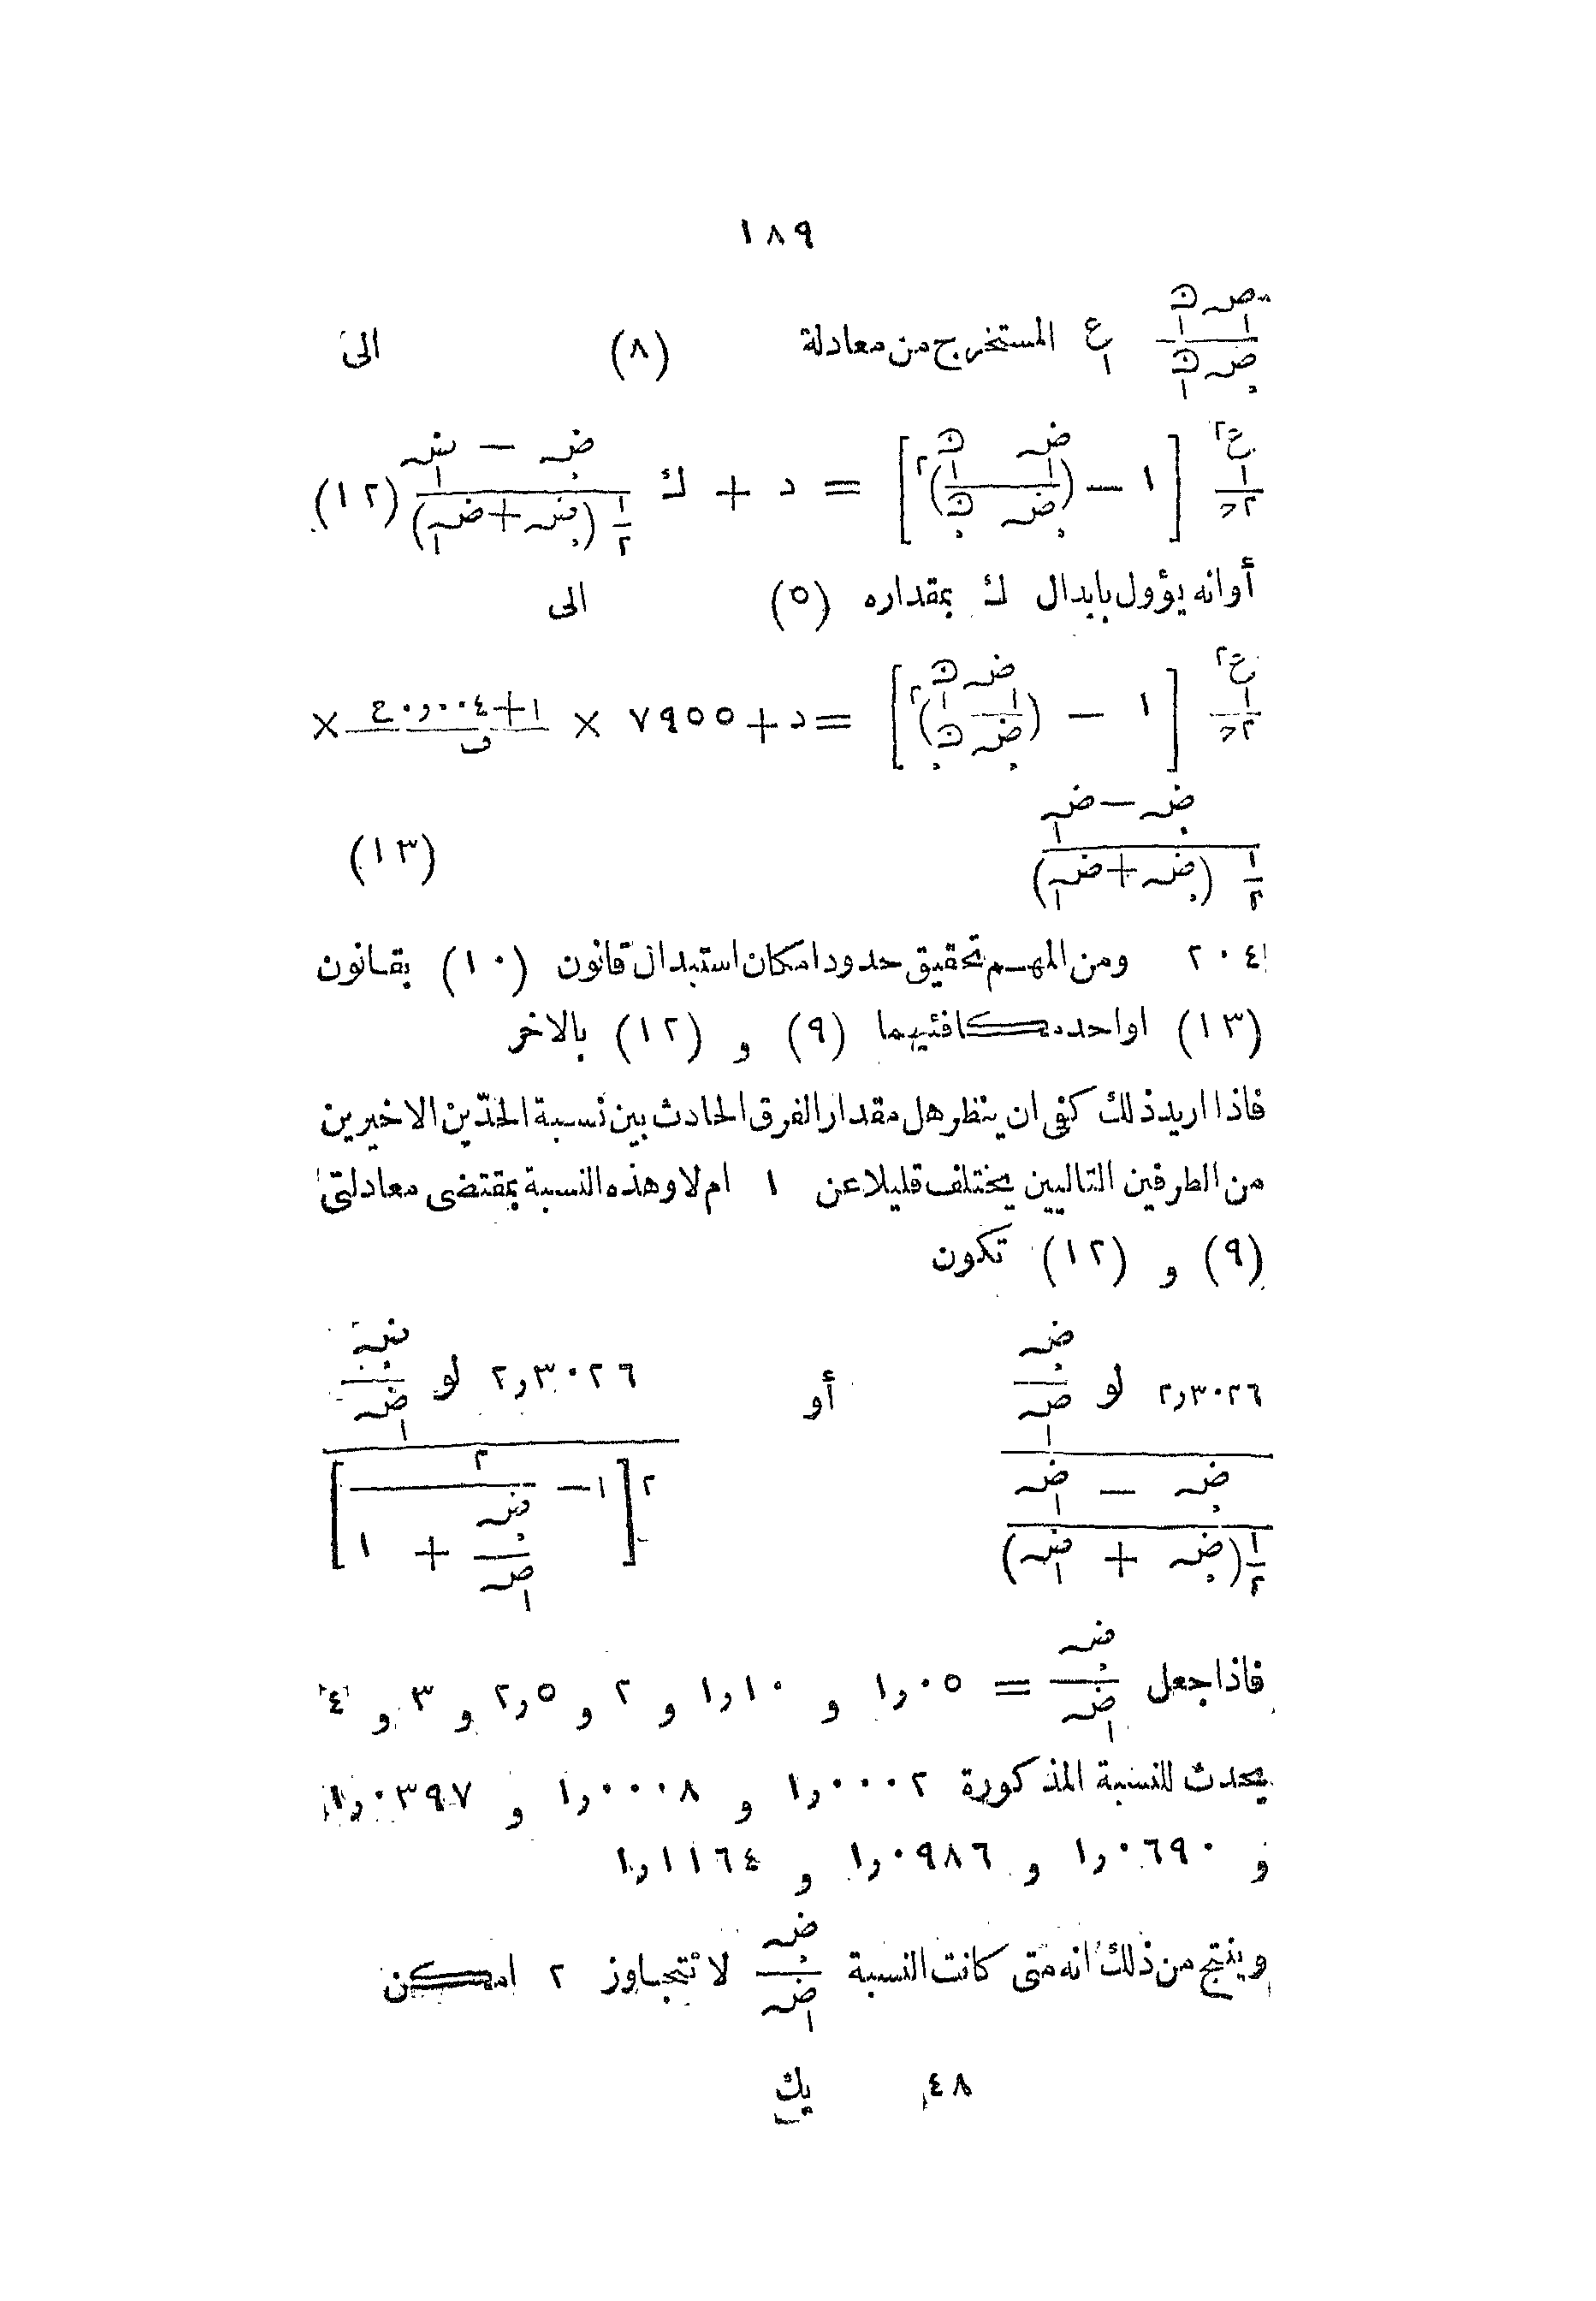 ١٨٩
ضہ١ ن١ / ضہ. ن١ ع١ المستخرج من معادلة (٨) الى
ع١٢ / ٢ﺣ [١ − (ضہ١ ن١ / ضہ. ن.)٢] = د + ك (ضہ. − ضہ١) / ١/٢ (ضہ. + ضہ١) (١٢)
أوانه يؤول بابدال ك بمقداره (٥) الى
ع١٢ / ٢ﺣ [١ − (ضہ١ ن١ / ضہ. ن.)٢] = د + ٧٩٥٥ × (١ + ٠٠٤ر٠ ع) / ف ×
(ضہ. − ضہ١) / ١/٢ (ضہ. + ضہ١) (١٣)
٢٠٤ ومن المهم تحقيق حدود امكان استبدال قانون (١٠) بقانون
(١٣) او احد مكافئيهما (٩) و (١٢) بالاخر
فاذا اريد ذلك كفى ان ينظر هل مقدار الفرق الحادث بين نسبة الحدّين الاخيرين
من الطرفين التاليين يختلف قليلا عن ١ ام لا وهذه النسبة بمقتضى معادلتى
(٩) و (١٢) تكون
٣٠٢٦ر٢ لو ضہ. / ضہ١ أو ٣٠٢٦ر٢ لو ضہ. / ضہ١
(ضہ. − ضہ١) / ١/٢ (ضہ. + ضہ١) ٢ [١ − ٢ / (ضہ. / ضہ١ + ١)]
فاذا جعل ضہ. / ضہ١ = ٠٥ر١ و ١٠ر١ و ٢ و ٥ر٢ و ٣ و ٤
يحدث للنسبة المذكورة ٠٠٠٢ر١ و ٠٠٠٨ر١ و ٠٣٩٧ر١
و ٠٦٩٠ر١ و ٠٩٨٦ر١ و ١١٦٤ر١
وينتج من ذلك انه متى كانت النسبة ضہ. / ضہ١ لا تتجاوز ٢ امكن
٤٨ يك